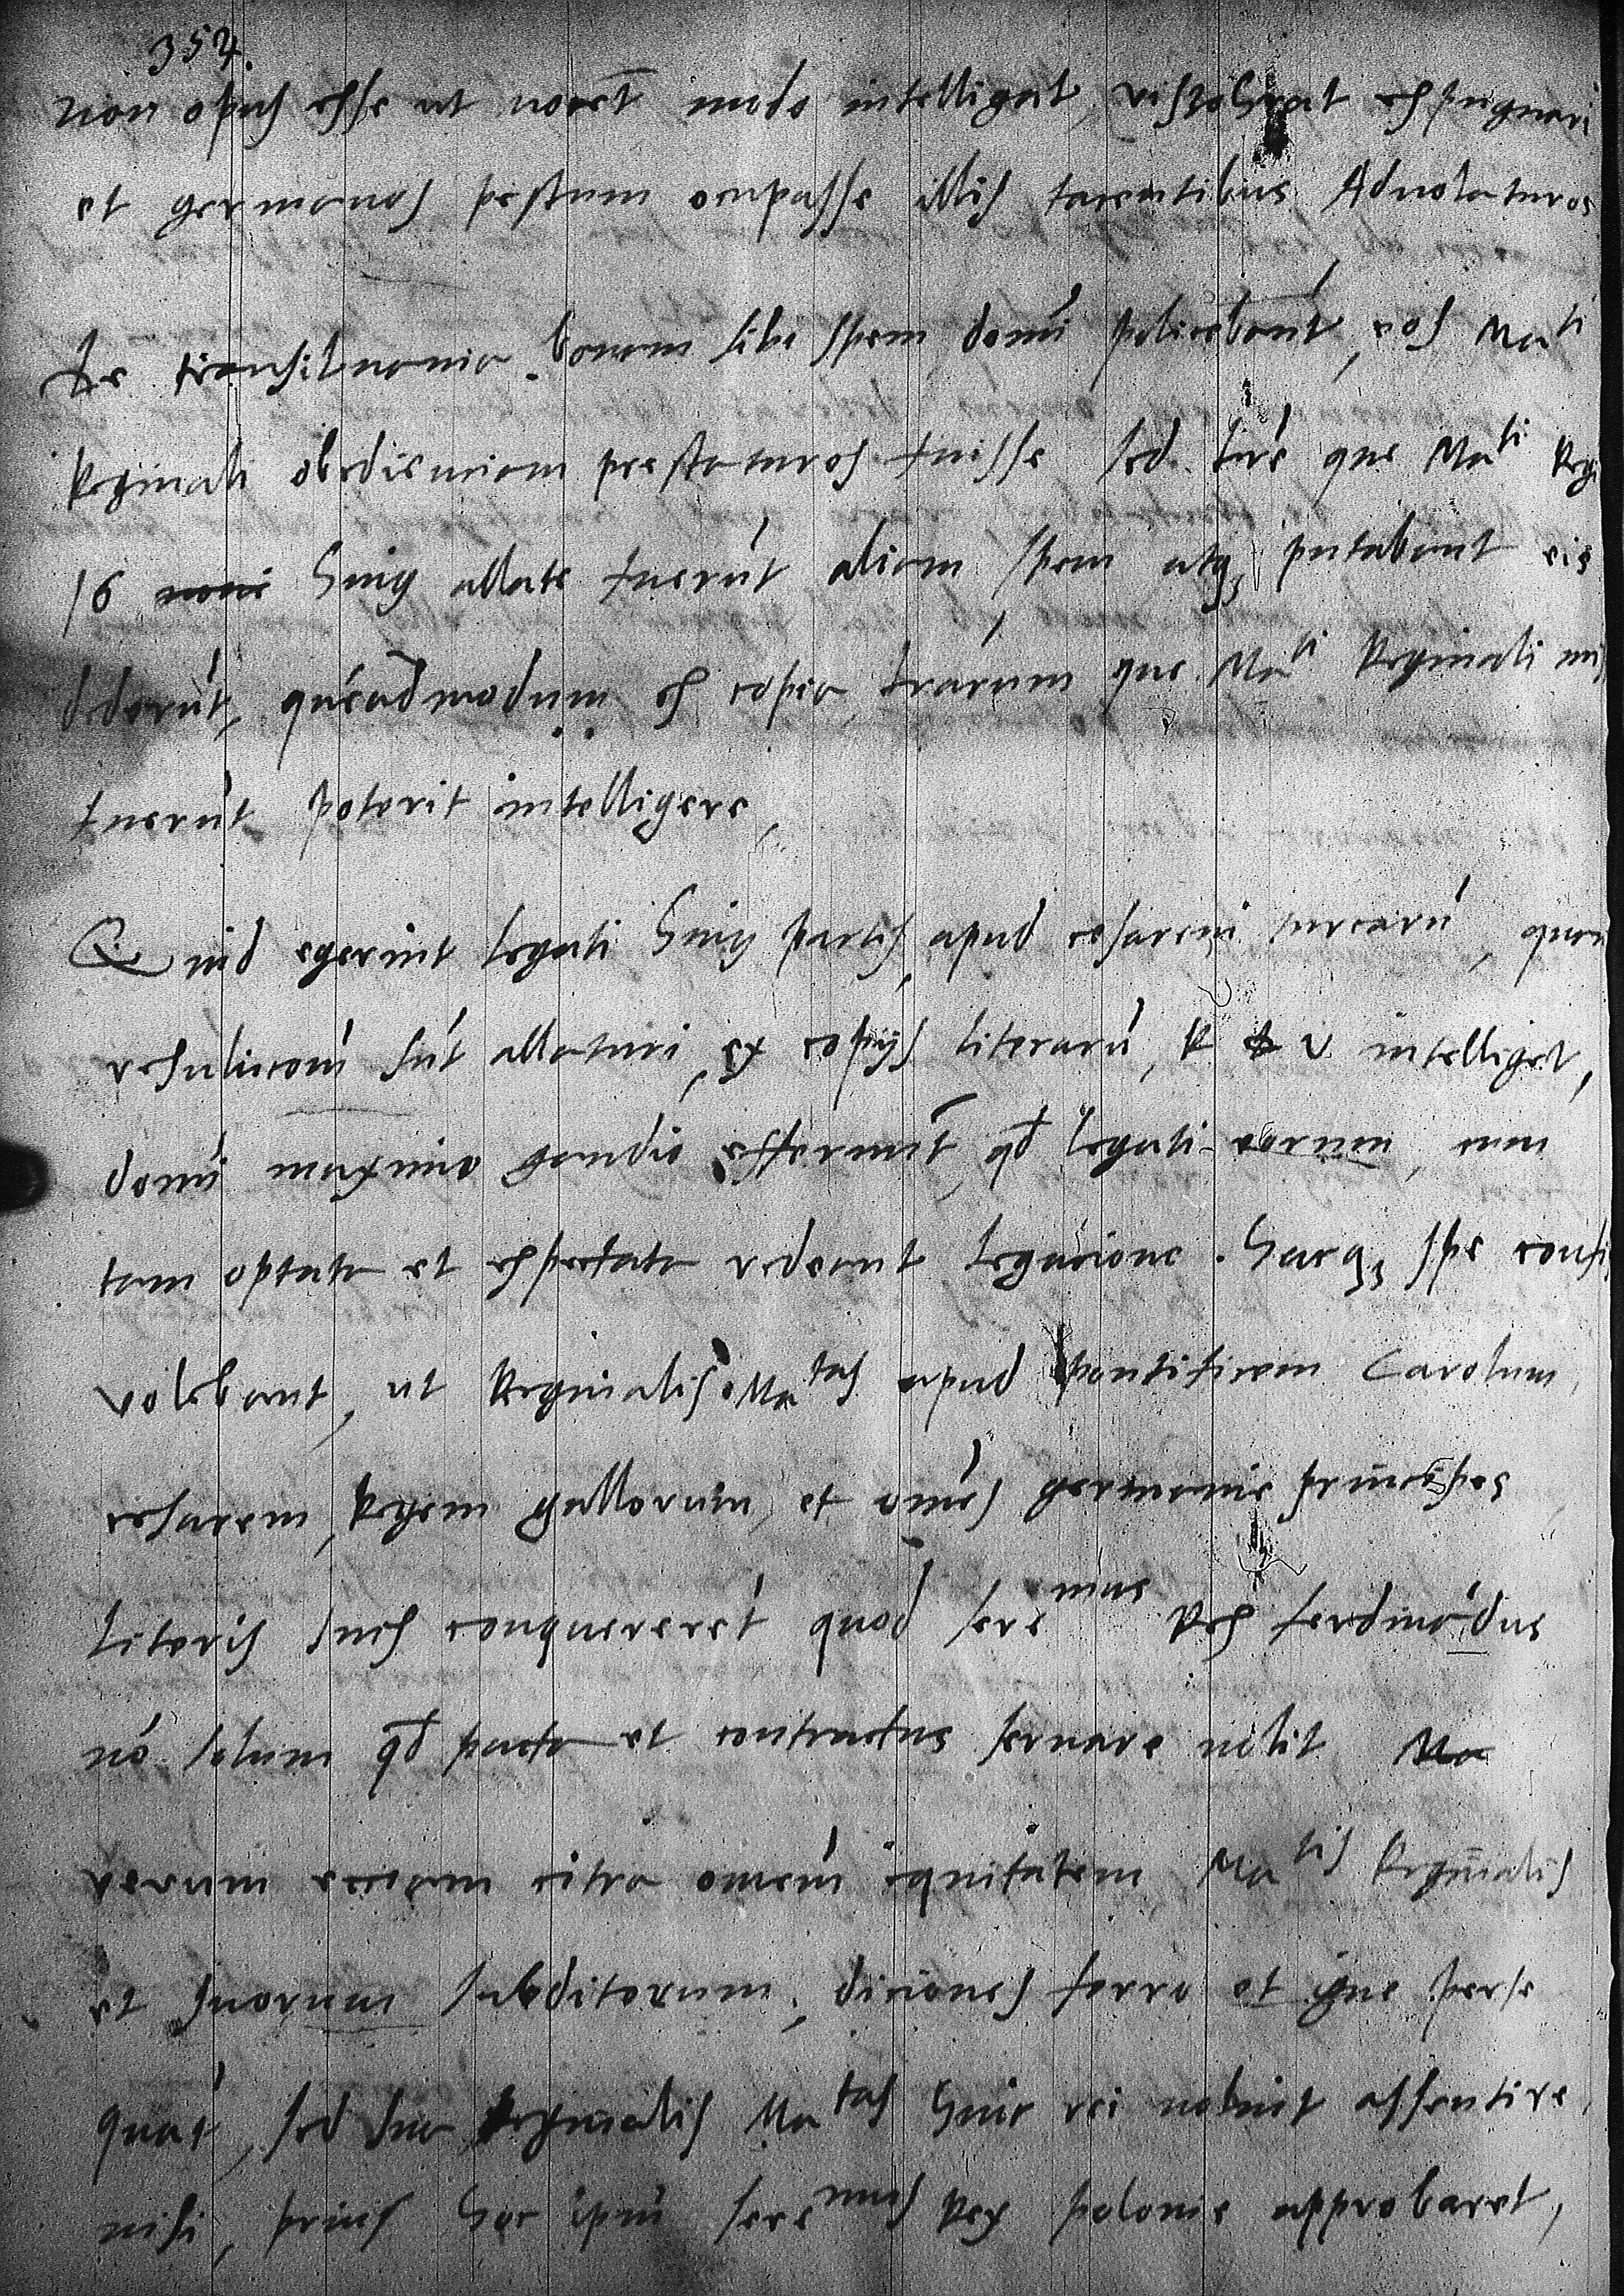 354.
non opus esse ut nocēt modo intelligat, expugnari
et germanos pestum occupasse illis tacentibus Aduolaturos
De transiluania bonam sibi spem domī policebant, eos Maᵗⁱ
Reginali obedienciam prestaturos fuisse sed lrē que Maᵗⁱ Regi
16 huiꝰ allate fuerūt aliam spem atqȝ putabant eis
dederūt, quēadmodum ex copia lrarum que Maᵗⁱ Reginali mis
fuerūt poterit intelligere,
Quid egerint legati huiꝰ partis apud cesarem turcarū, quam
resulucōm sūt allaturi, ex copijs literarū, R V intelliget,
domī maximo gaudio efferunt, qd legati eorum, cum
tam optata et expectata redeant legacione. hacqȝ spe confi
volebant, ut Reginalis Maᵗᵃˢ apud pontificem Carolum,
cesarem, Regem gallorum, et omēs germanie principes
literis suis conquereret quod sereᵐᵘˢ Rex ferdinādus
nō solum qd pacta et contractus seruare nolit Ma
verum eciam citra omēm equitatem Maᵗⁱˢ Reginalis
et suorum subditorum, diciones ferro et igne perse
quat, sed sua Reginalis Maᵗᵃˢ huic rei noluit assentire,
nisi, prius hoc ipm sereᵐᵘˢ Rex polonie approbaret,